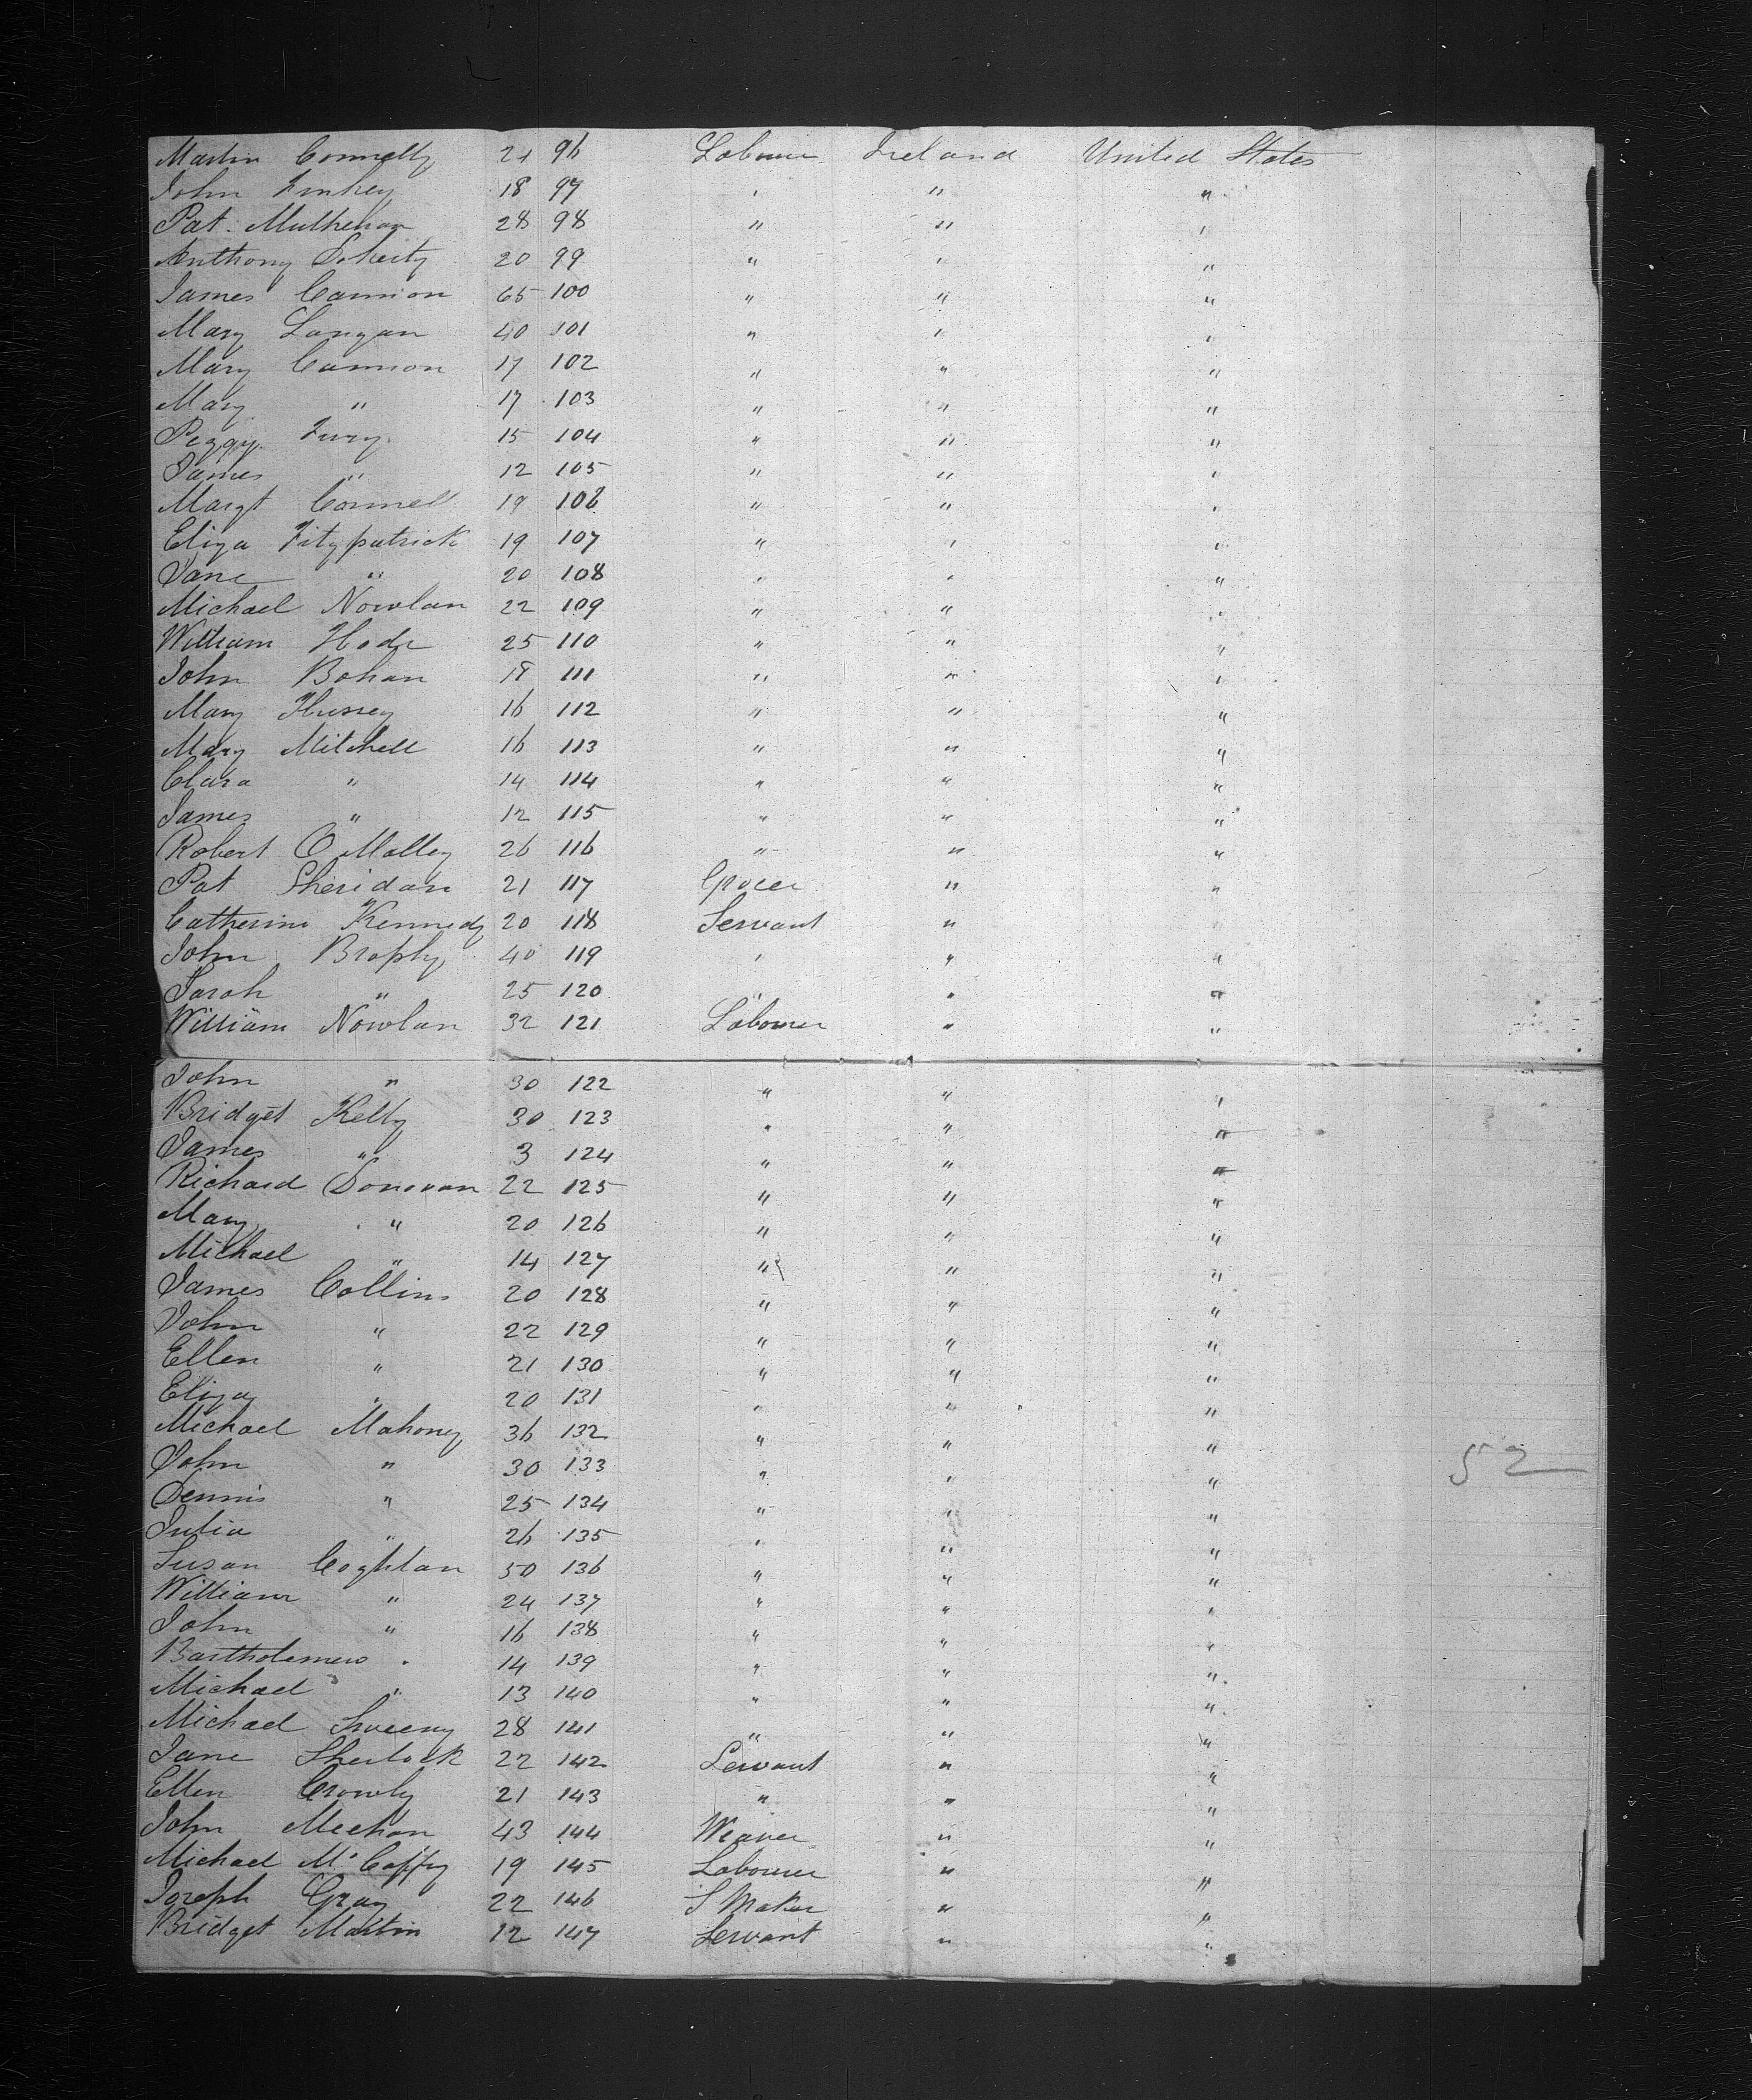 Martin Connelly 21 96 Labourer Ireland United States
John 18 97 " " "
Pat. Mulhehan 28 98 " " "
Anthony Doherty 20 99 " " "
James Cannion 65 100 " " "
Mary Langan 40 101 " " "
Mary Cannion 17 102 " " "
Mary " 17 103 " " "
Peggy Fury 15 104 " " "
James " 12 105 " " "
Margt Connell 19 106 " " "
Eliza Fitzpatrick 19 107 " " "
Jane " 20 108 " " "
Michael Nowlan 22 109 " " "
William 25 110 " " "
John Bohan 18 111 " " "
Mary Hussey 16 112 " " "
Mary Mitchell 16 113 " " "
Clara " 14 114 " " "
James " 12 115 " " "
Robert O Malley 26 116 " " "
Pat Sheridan 21 117 Grocer " "
Catherine Kennedy 20 118 Servant " "
John Brophy 40 119 " " "
Sarah " 25 120 " " "
William Nowlan 32 121 Labourer " "
John " 30 122 " " "
Bridget Kelly 30 123 " " "
James " 3 124 " " "
Richard Donovan 22 125 " " "
Mary " 20 126 " " "
Michael " 14 127 " " "
James Collins 20 128 " " "
John " 22 129 " " "
Ellen " 21 130 " " "
Eliza " 20 131 " " "
Michael Mahoney 36 132 " " "
John " 30 133 " " "
52
Dennis " 25 134 " " "
Julia " 26 135 " " "
Susan Coghlan 50 136 " " "
William " 24 137 " " "
John " 16 138 " " "
Bartholemew " 14 139 " " "
Michael " 13 140 " " "
Michael Sweeny 28 141 " " "
Jane Sherlock 22 142 Servant " "
Ellen Crowly 21 143 " " "
John Meehan 43 144 Weaver " "
Michael McCaffry 19 145 Labourer " "
Joseph Gray 22 146 S Maker " "
Bridget Martin 12 147 Servant " "